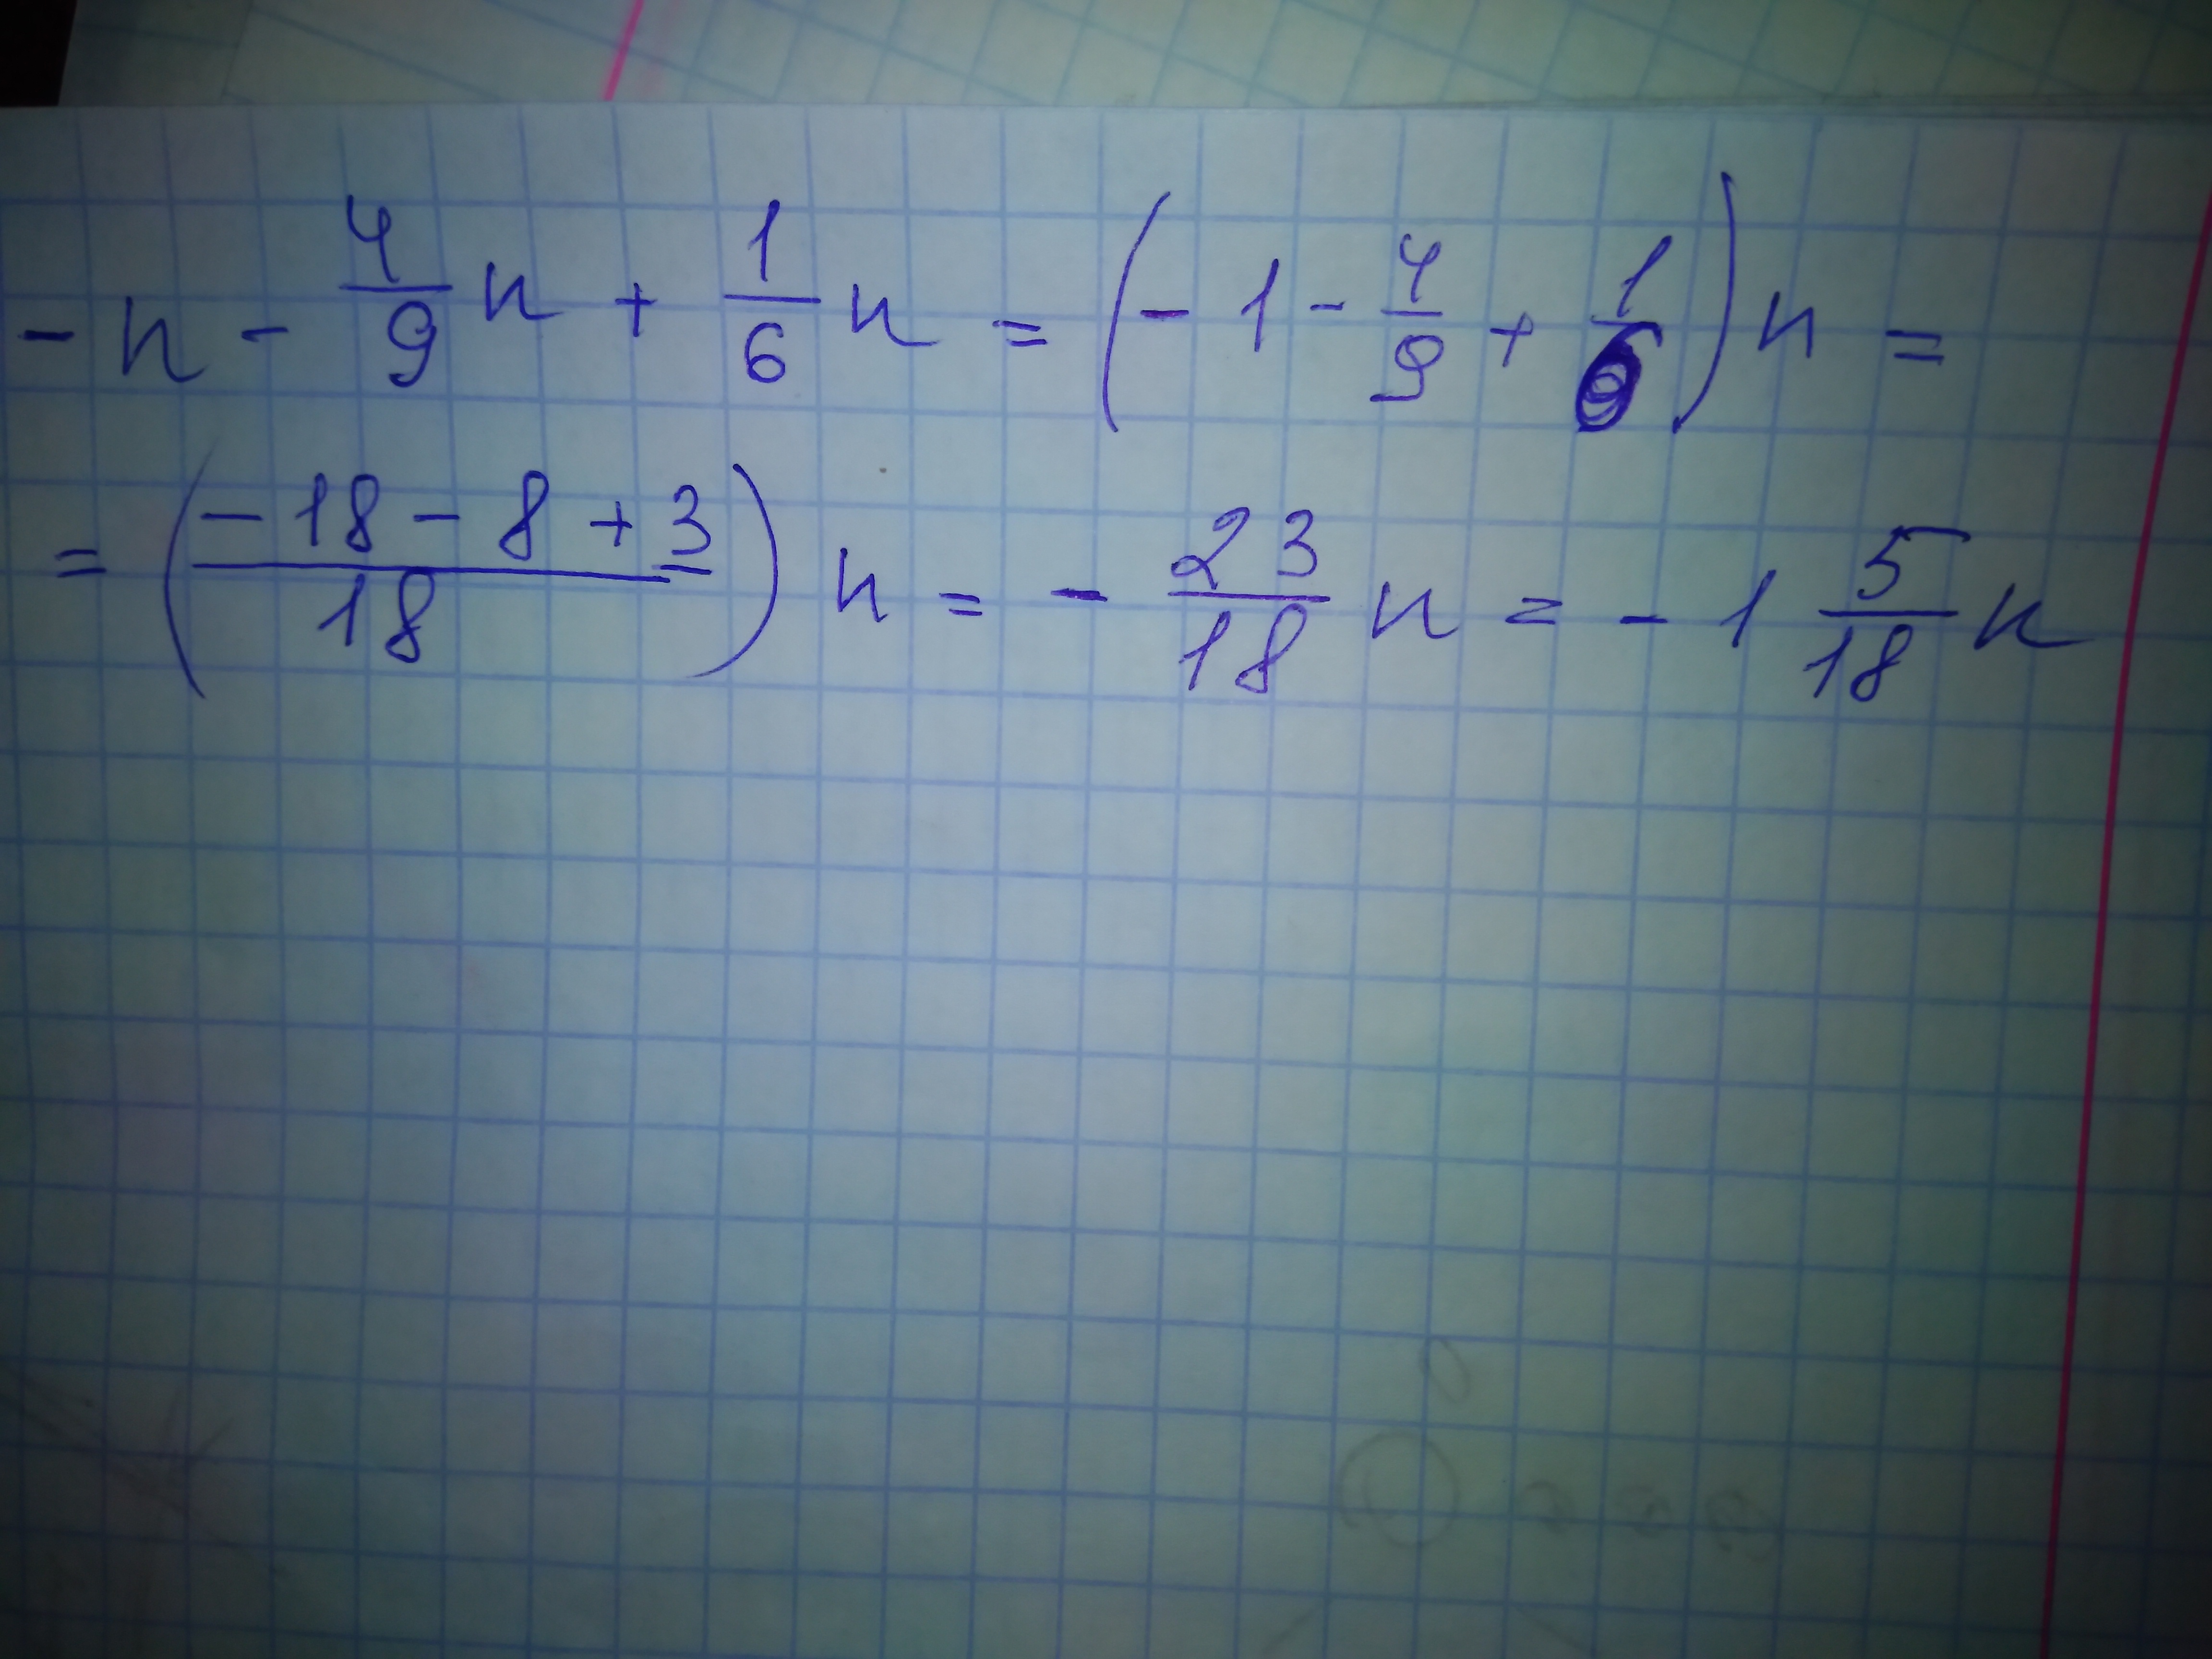 - n - 4/9 n + 1/6 n = (- 1 - 4/9 + 1/6) n =
= (- 18 - 8 + 3 / 18) n = - 23/18 n = - 1 5/18 n